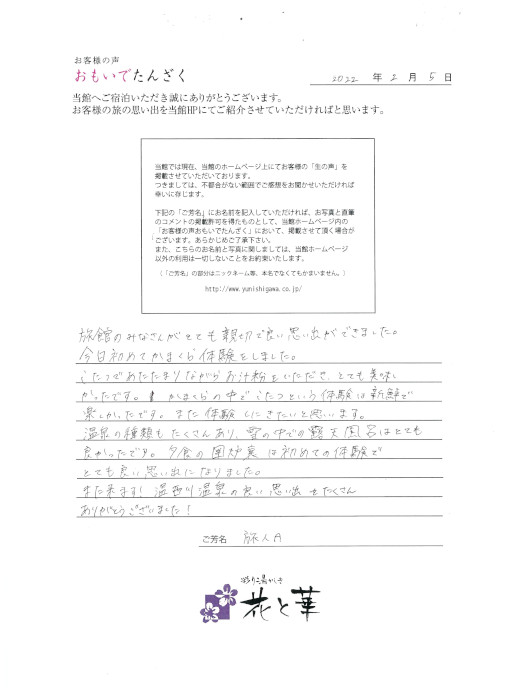 お客様の声
おもいでたんざく
2022 年 2 月 5 日
当館へご宿泊いただき誠にありがとうございます。
お客様の旅の思い出を当館HPにてご紹介させていただければと思います。
当館では現在、当館のホームページ上にてお客様の「生の声」を
掲載させていただいております。
つきましては、不都合がない範囲でご感想をお聞かせいただければ
幸いに存じます。
下記の「ご芳名」にお名前を記入していただければ、お写真と直筆
のコメントの掲載許可を得たものとして、当館ホームページ内の
「お客様の声おもいでたんざく」において、掲載させて頂く場合が
ございます。あらかじめご了承下さい。
また、こちらのお名前と写真に関しましては、当館ホームページ
以外の利用は一切しないことをお約束いたします。
(「ご芳名」の部分はニックネーム等、本名でなくてもかまいません。)
http://www.yunishigawa.co.jp/
旅館のみなさんがとても親切で良い思い出ができました。
今日初めてかまくら体験をしました。
こたつであたたまりながらお汁粉をいただき、とても美味し
かったです。かまくらの中でこたつという体験は新鮮で
楽しかったです。また体験しにきたいと思います。
温泉の種類もたくさんあり、雪の中での露天風呂はとても
良かったです。夕食の囲炉裏は初めての体験で
とても良い思い出になりました。
また来ます!湯西川温泉の良い思い出をたくさん
ありがとうございました!
ご芳名 旅人A
彩り湯かしき
花と華